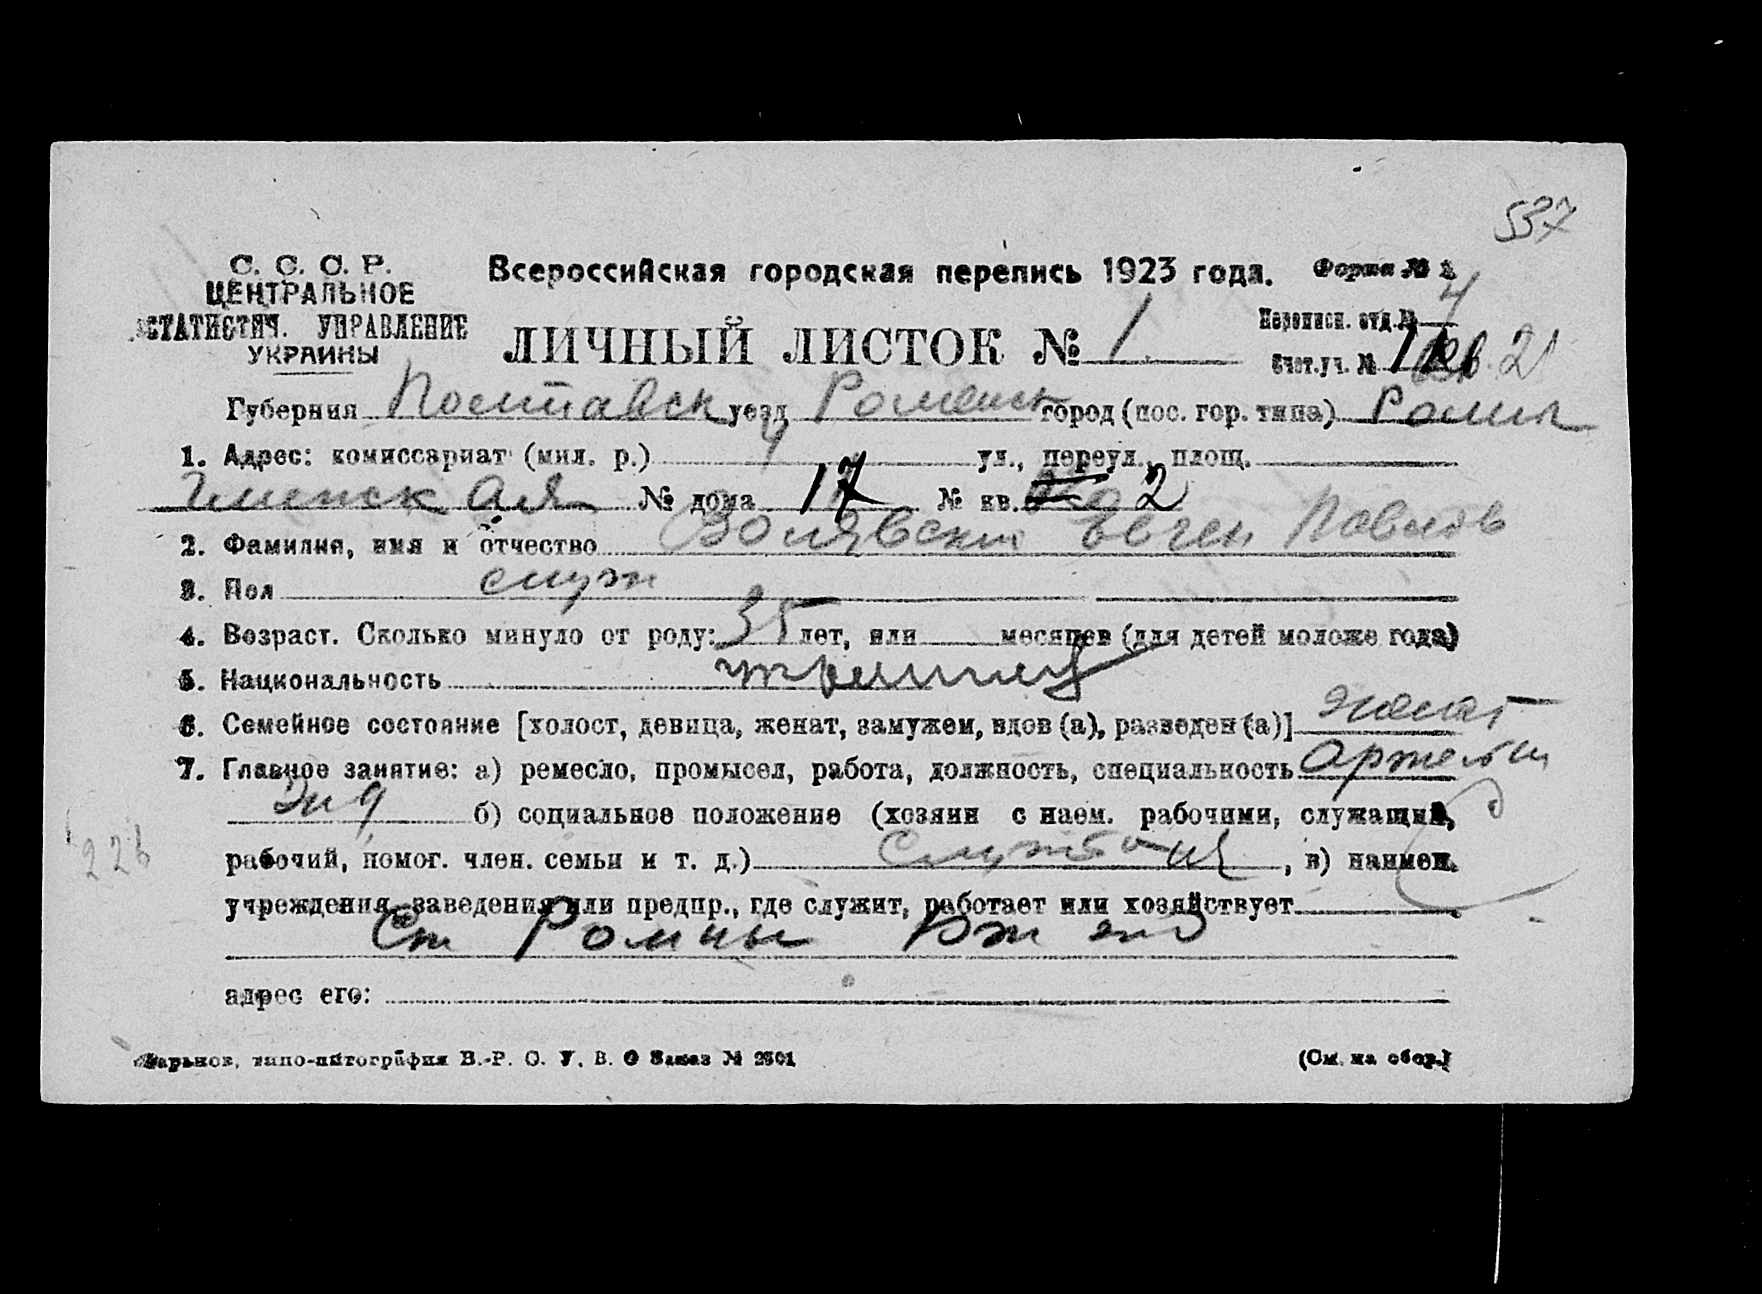 537
С. С. С. Р.
ЦЕНТРАЛЬНОЕ
СТАТИСТИЧ. УПРАВЛЕНИЕ
УКРАИНЫ
Всероссийская городская перепись 1923 года.
Форма № 2
ЛИЧНЫЙ ЛИСТОК № 1.
Перепись. отд. № 4
Счет.уч. № 11 кв. 21
Губерния Полтавск уезд Роменск город (пос. гор. типа) Ромны
1. Адрес: комиссариат (мил. р.) 4 ул., переул., площ.
ская № дома 17 № кв. 2
2. Фамилия, имя и отчество Волявский Евген Павлов
3. Пол муж
4. Возраст. Сколько минуло от роду: 35 лет, или месяцев (для детей моложе года)
5. Национальность украинец
6. Семейное состояние [холост, девица, женат, замужем, вдов (а), разведен (а)] женат
7. Главное занятие: а) ремесло, промысел, работа, должность, специальность
б) социальное положение (хозяин с наем. рабочими, служащий,
226
рабочий, помог. член. семьи и т. д.) служащий, в) наимен.
учреждения, заведения или предпр., где служит, работает или хозяйствует
Ст Ромны
адрес его:
Харьков, типо-литография В.-Р. О. У. В. О Заказ № 2301
(См. на обор.)